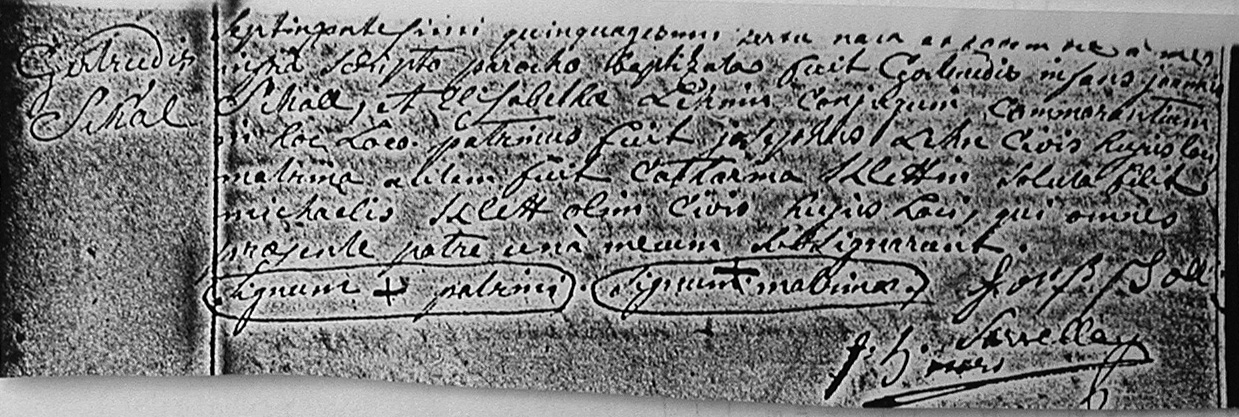 Gertrudis
Schal
Septingentesimi quinquagesimi nata eadem die a me
infra scripto parocho baptizata fuit Gertrudis infans joannis
Schall, et Elisabetha conjugum commorantium
in hoc Loco. patrinus fuit josephus Lehn Civis hujus loci
matrina autem fuit Catharina Klettin soluta filia
michaelis Klett olim Civis hujus Loci, qui omnes
praesente patre una mecum subsignarunt.
signum + patrini. signum + matrinae.